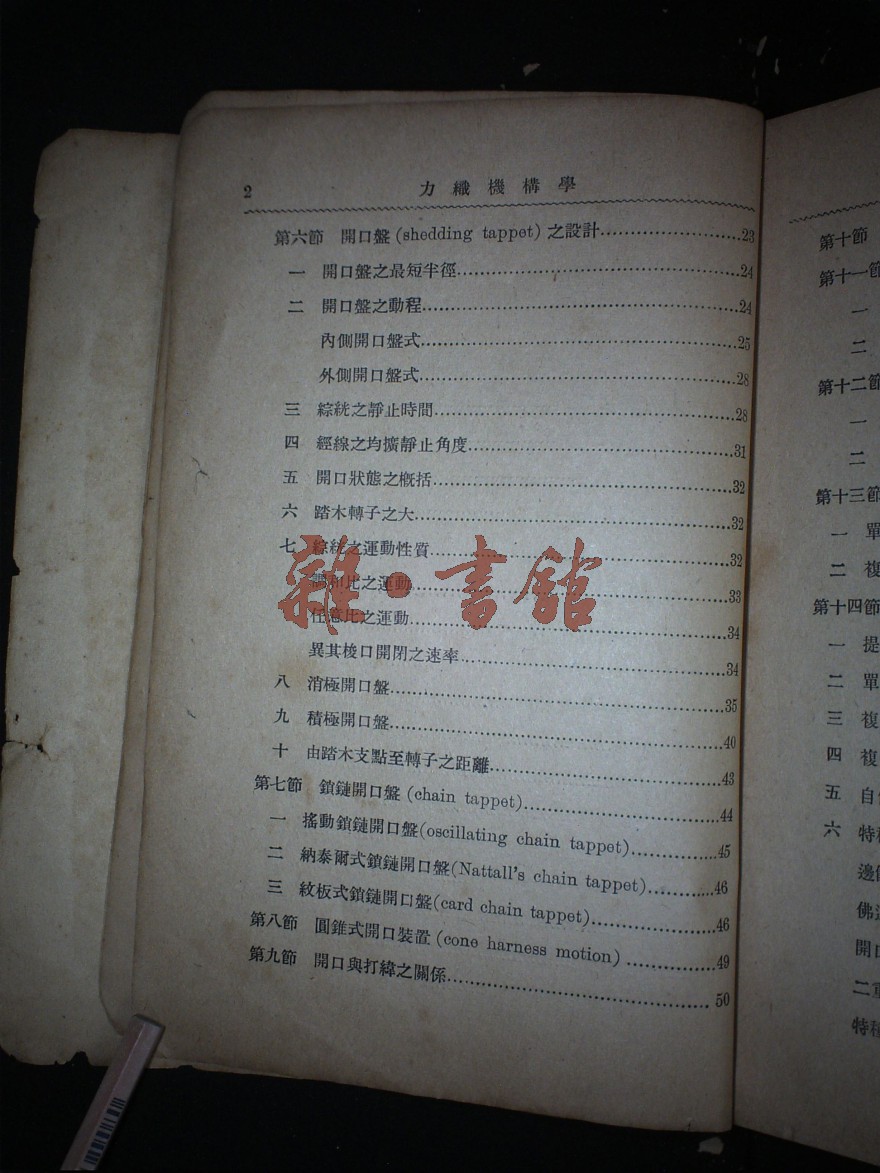 2
力織機構學
第六節 開口盤(shedding tappet)之設計……23
一 開口盤之最短半徑……24
二 開口盤之動程……24
內側開口盤式……25
外側開口盤式……28
三 綜絖之靜止時間……28
四 經線之均擴靜止角度……31
五 開口狀態之槪括……32
六 踏木轉子之大……32
七 綜絖之運動性質……32
調和比之運動……33
任意比之運動……34
異其梭口開閉之速率……34
八 消極開口盤……35
九 積極開口盤……40
十 由踏木支點至轉子之距離……43
第七節 鎖鏈開口盤(chain tappet)……44
一 搖動鎖鏈開口盤(oscillating chain tappet)……45
二 納泰爾式鎖鏈開口盤(Nattall's chain tappet)……46
三 紋板式鎖鏈開口盤(card chain tappet)……46
第八節 圓錐式開口装置(cone harness motion)……49
第九節 開口與打緯之關係……50
雜·書舘
第十節
第十一節
一
二
第十二節
一
二
第十三節
一 單
二 複
第十四節
一 提
二 單
三 複
四 複
五 自
六 特
邊
佛
開口
二重
特種